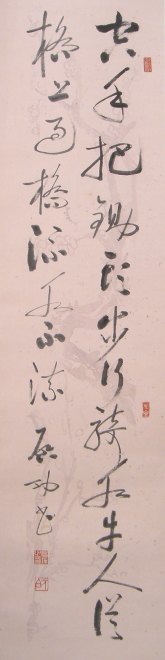 空手把鋤頭步行騎水牛人從
橋上過橋流水不流 啟功書